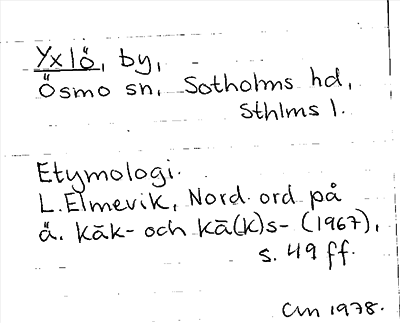 Yxlö, by,
Ösmo sn, Sotholms hd,
Sthlms l.
Etymologi.
L. Elmevik, Nord. ord på
ä. kāk- och kā(k)s- (1967),
s. 49 ff.
CM 1978.